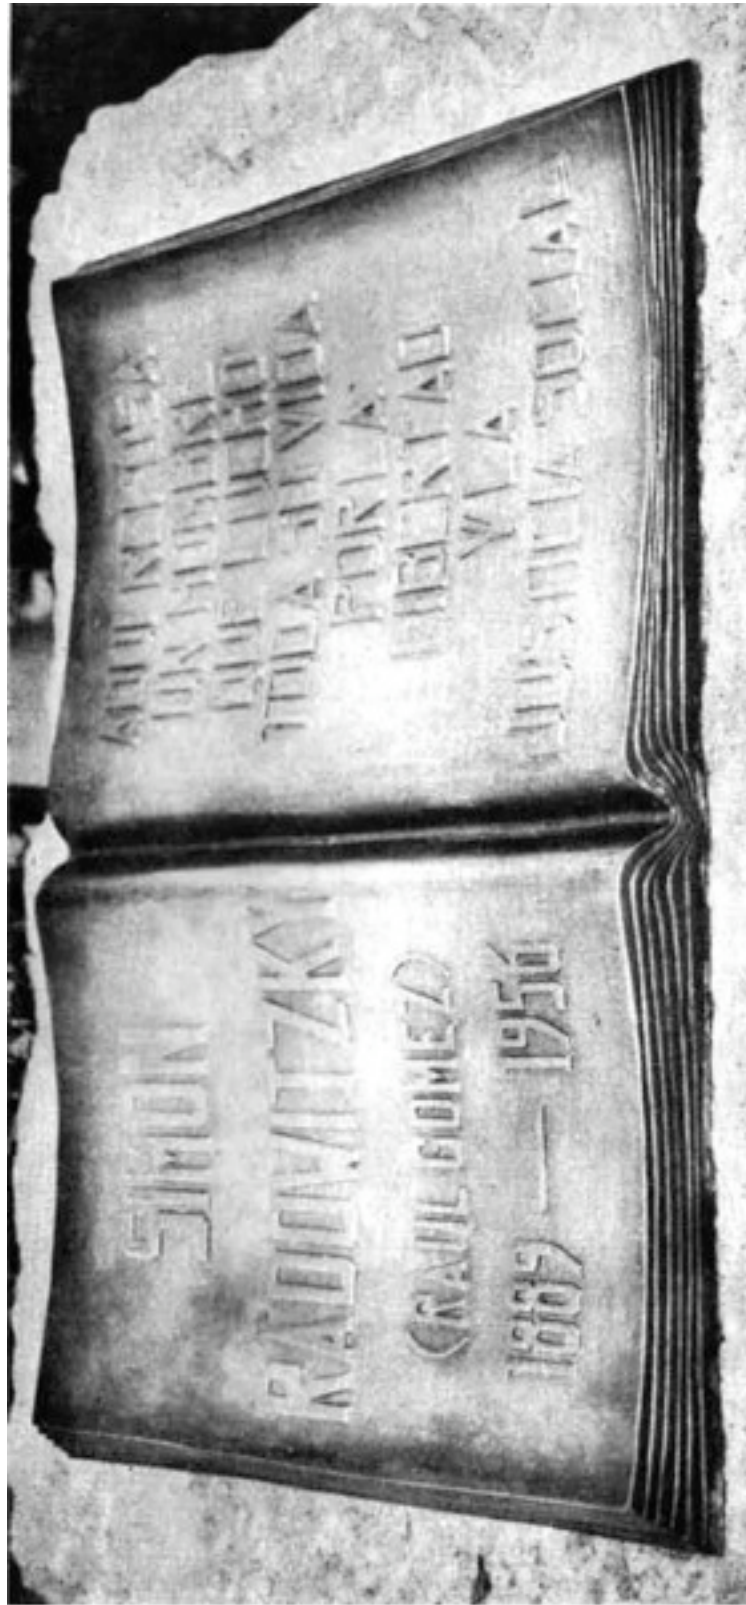 SIMON
RADOWITZKY
(RAUL GOMEZ)
1889 — 1956
AQUI REPOSA
UN HOMBRE
QUE LUCHO
TODA SU VIDA
POR LA
LIBERTAD
Y LA
JUSTICIA SOCIAL